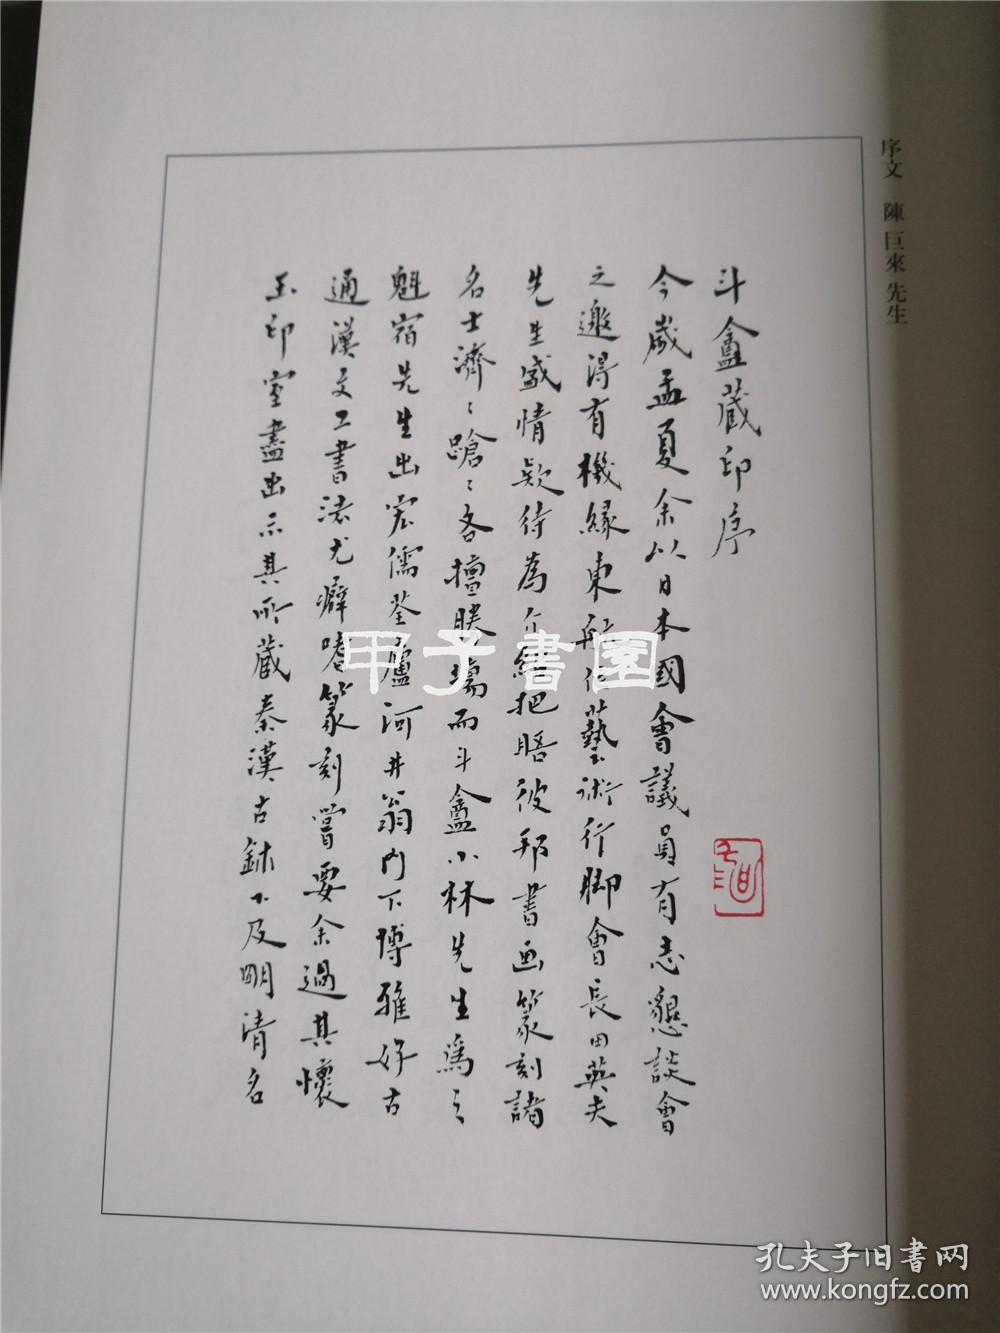 序文 陳巨來先生
斗盦藏印序
今歲孟夏余以日本國會議員有志懇談會
之邀得有機緣東航作藝術行脚會長田英夫
先生盛情款待為介紹把晤彼邦書画篆刻諸
名士濟〻蹌〻各擅勝場而斗盦小林先生爲之
魁宿先生出宏儒荃廬河井翁門下博雅好古
通漢文工書法尤癖嗜篆刻嘗要余過其懷
玉印室盡出示其所藏秦漢古鉥下及明清名
甲子書園
孔夫子旧書网
www.kongfz.com